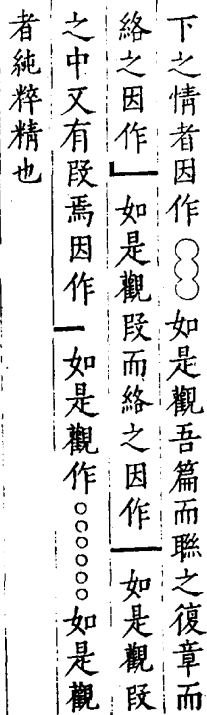 下之情者因作○○○如是觀吾篇而聮之復章而
絡之因作┗如是觀段而絡之因作┃如是觀段
之中又有段焉因作━如是觀作○○○○○○如是觀
者純粹精也